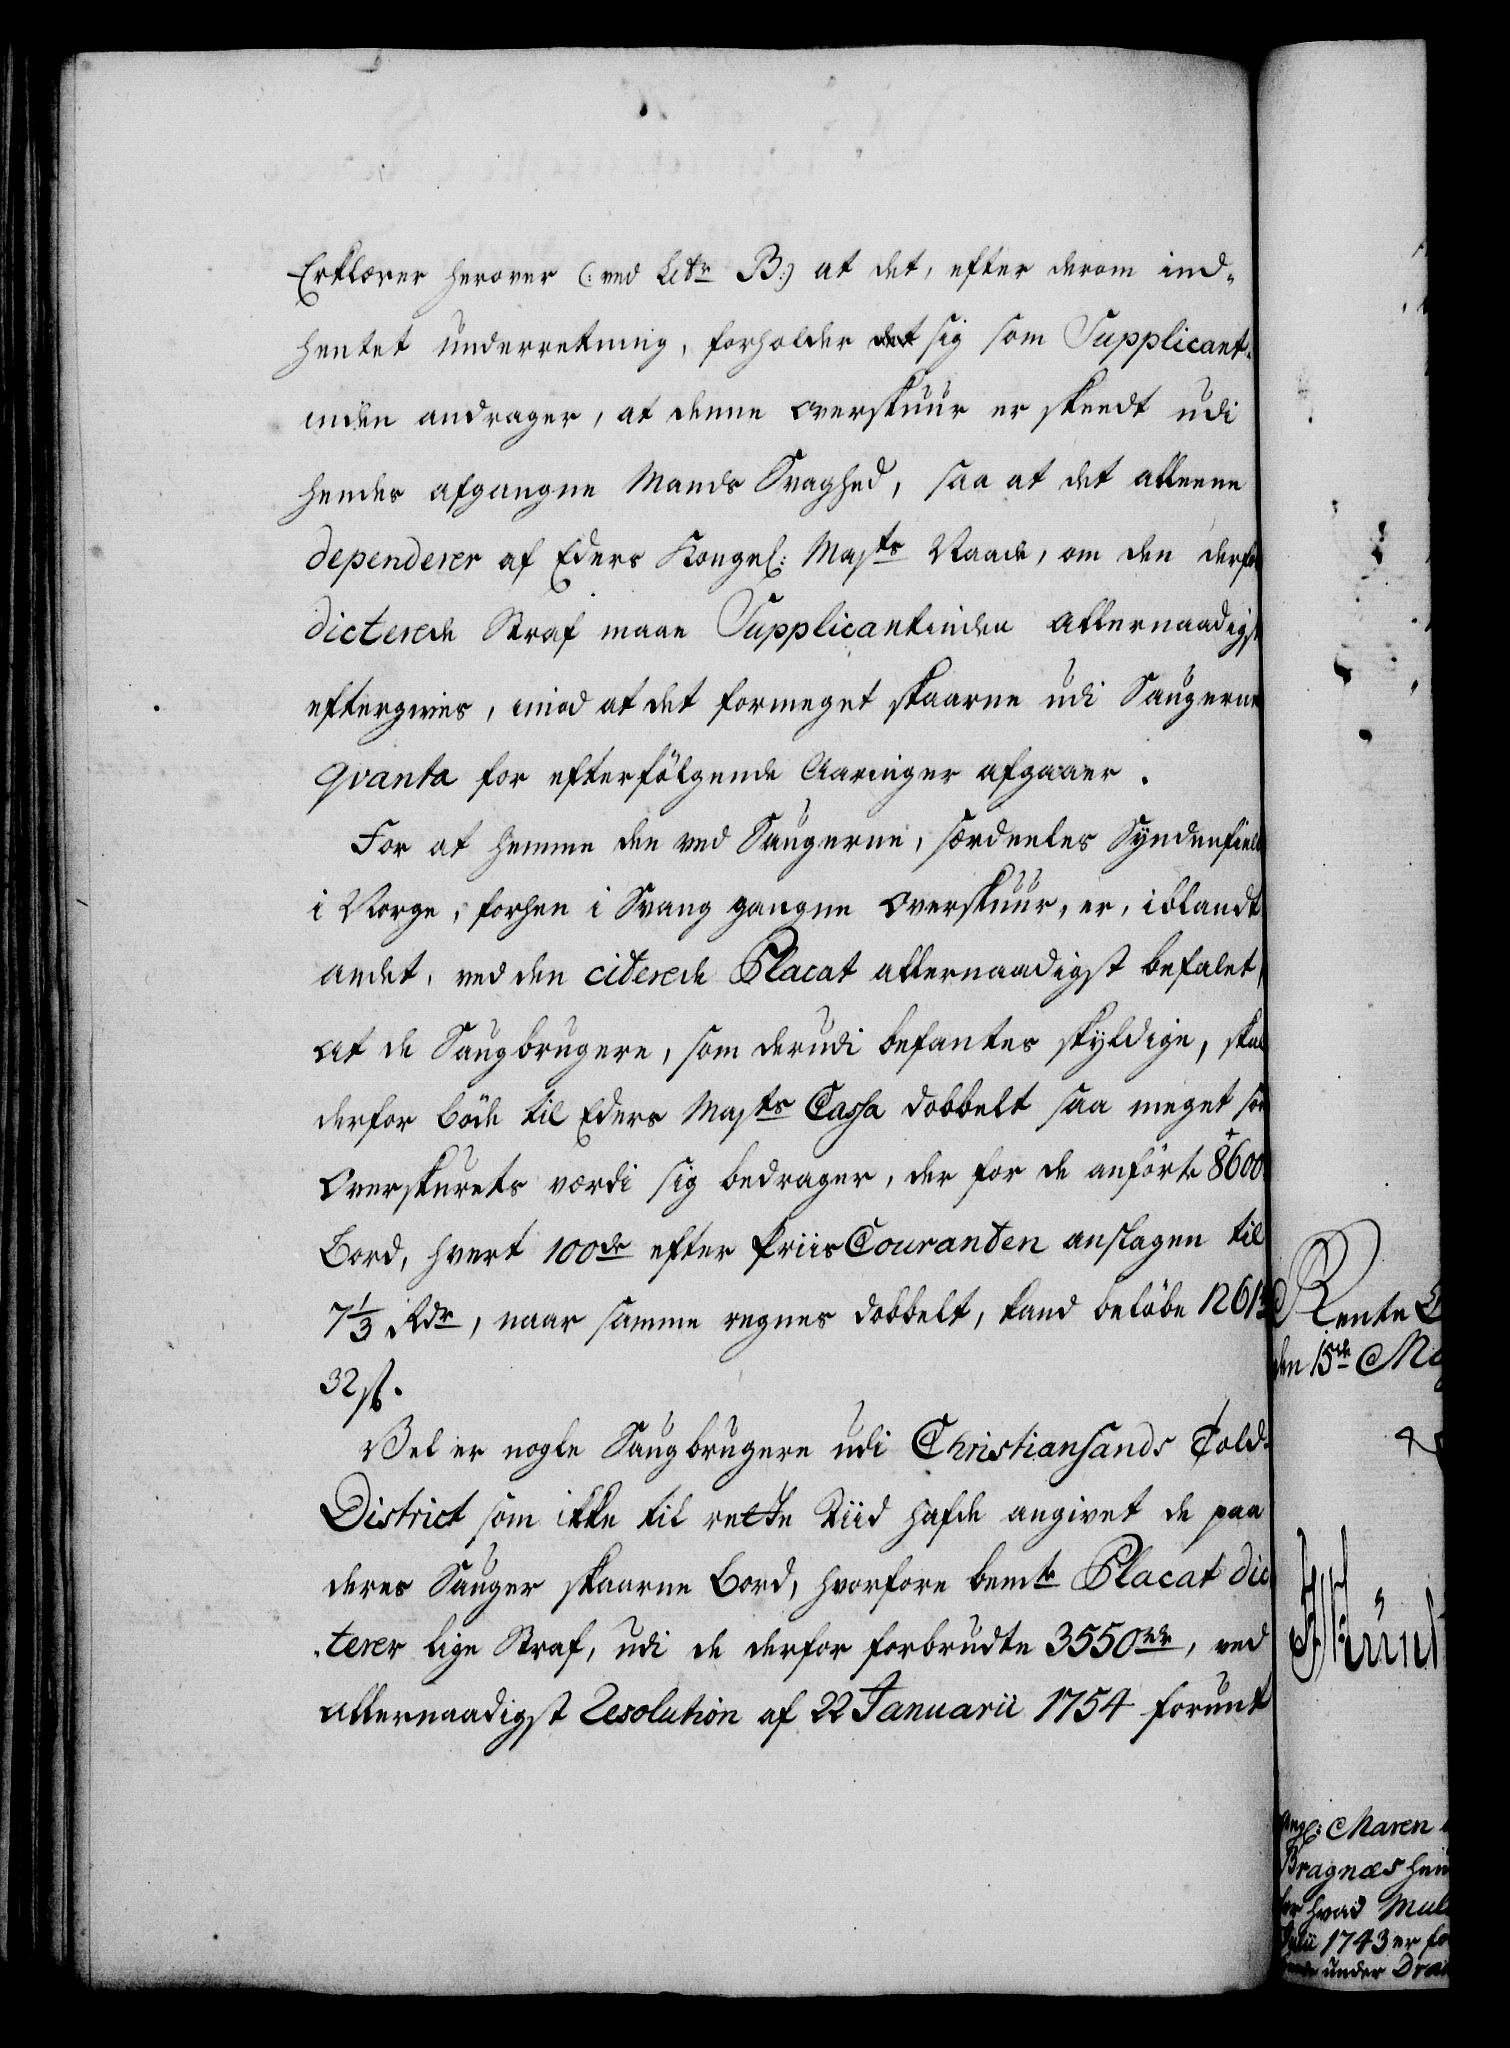 Erklærer herover (: ved Litr B:) at det, efter derom ind-
hentet underretning, forholder det sig som Supplicant-
inden andrager, at denne Overskuur er skeedt udi
hendes afgangne Mands Svaghed, saa at det alleene
dependerer af Eders Kongel: Majts Naade, om den derfor
dicterede Straf maae Supplicantinden allernaadigst
eftergives, imod at det formeget skaarne udi Saugernes
qvanta for efterfölgende Aaringer afgaaer.
For at hemme den ved Saugerne, særdeeles Syndenfields
i Norge, forhen i Svang gangne Overskuur, er, iblandt
andet, ved den citerede Placat allernaadigst befalet,
at de Saugbrugere, som derudi befantes skyldige, skal
derfor böde til Eders Majts Cassa dobbelt saa meget som
Overskurets værdi sig bedrager, der for de anförte 8600
Bord, hvert 100de efter Priis Couranten anslagen til
7 1/3 Rdr, naar samme regnes dobbelt, kand belöbe 1261
32 ß.
Vel er nogle Saugbrugere udi Christiansands Told-
District som ikke til rette Tiid hafde angivet de paa
deres Sauger skaarne Bord, hvorfore bemte Placat dic-
terer lige Straf, udi de derfor forbrudte 3550 Rdr, ved
allernaadigst Resolution af 22 Januarii 1754 forunt
Rente
den 15de
Maren
Bragnæs
hvad
1743 er
under